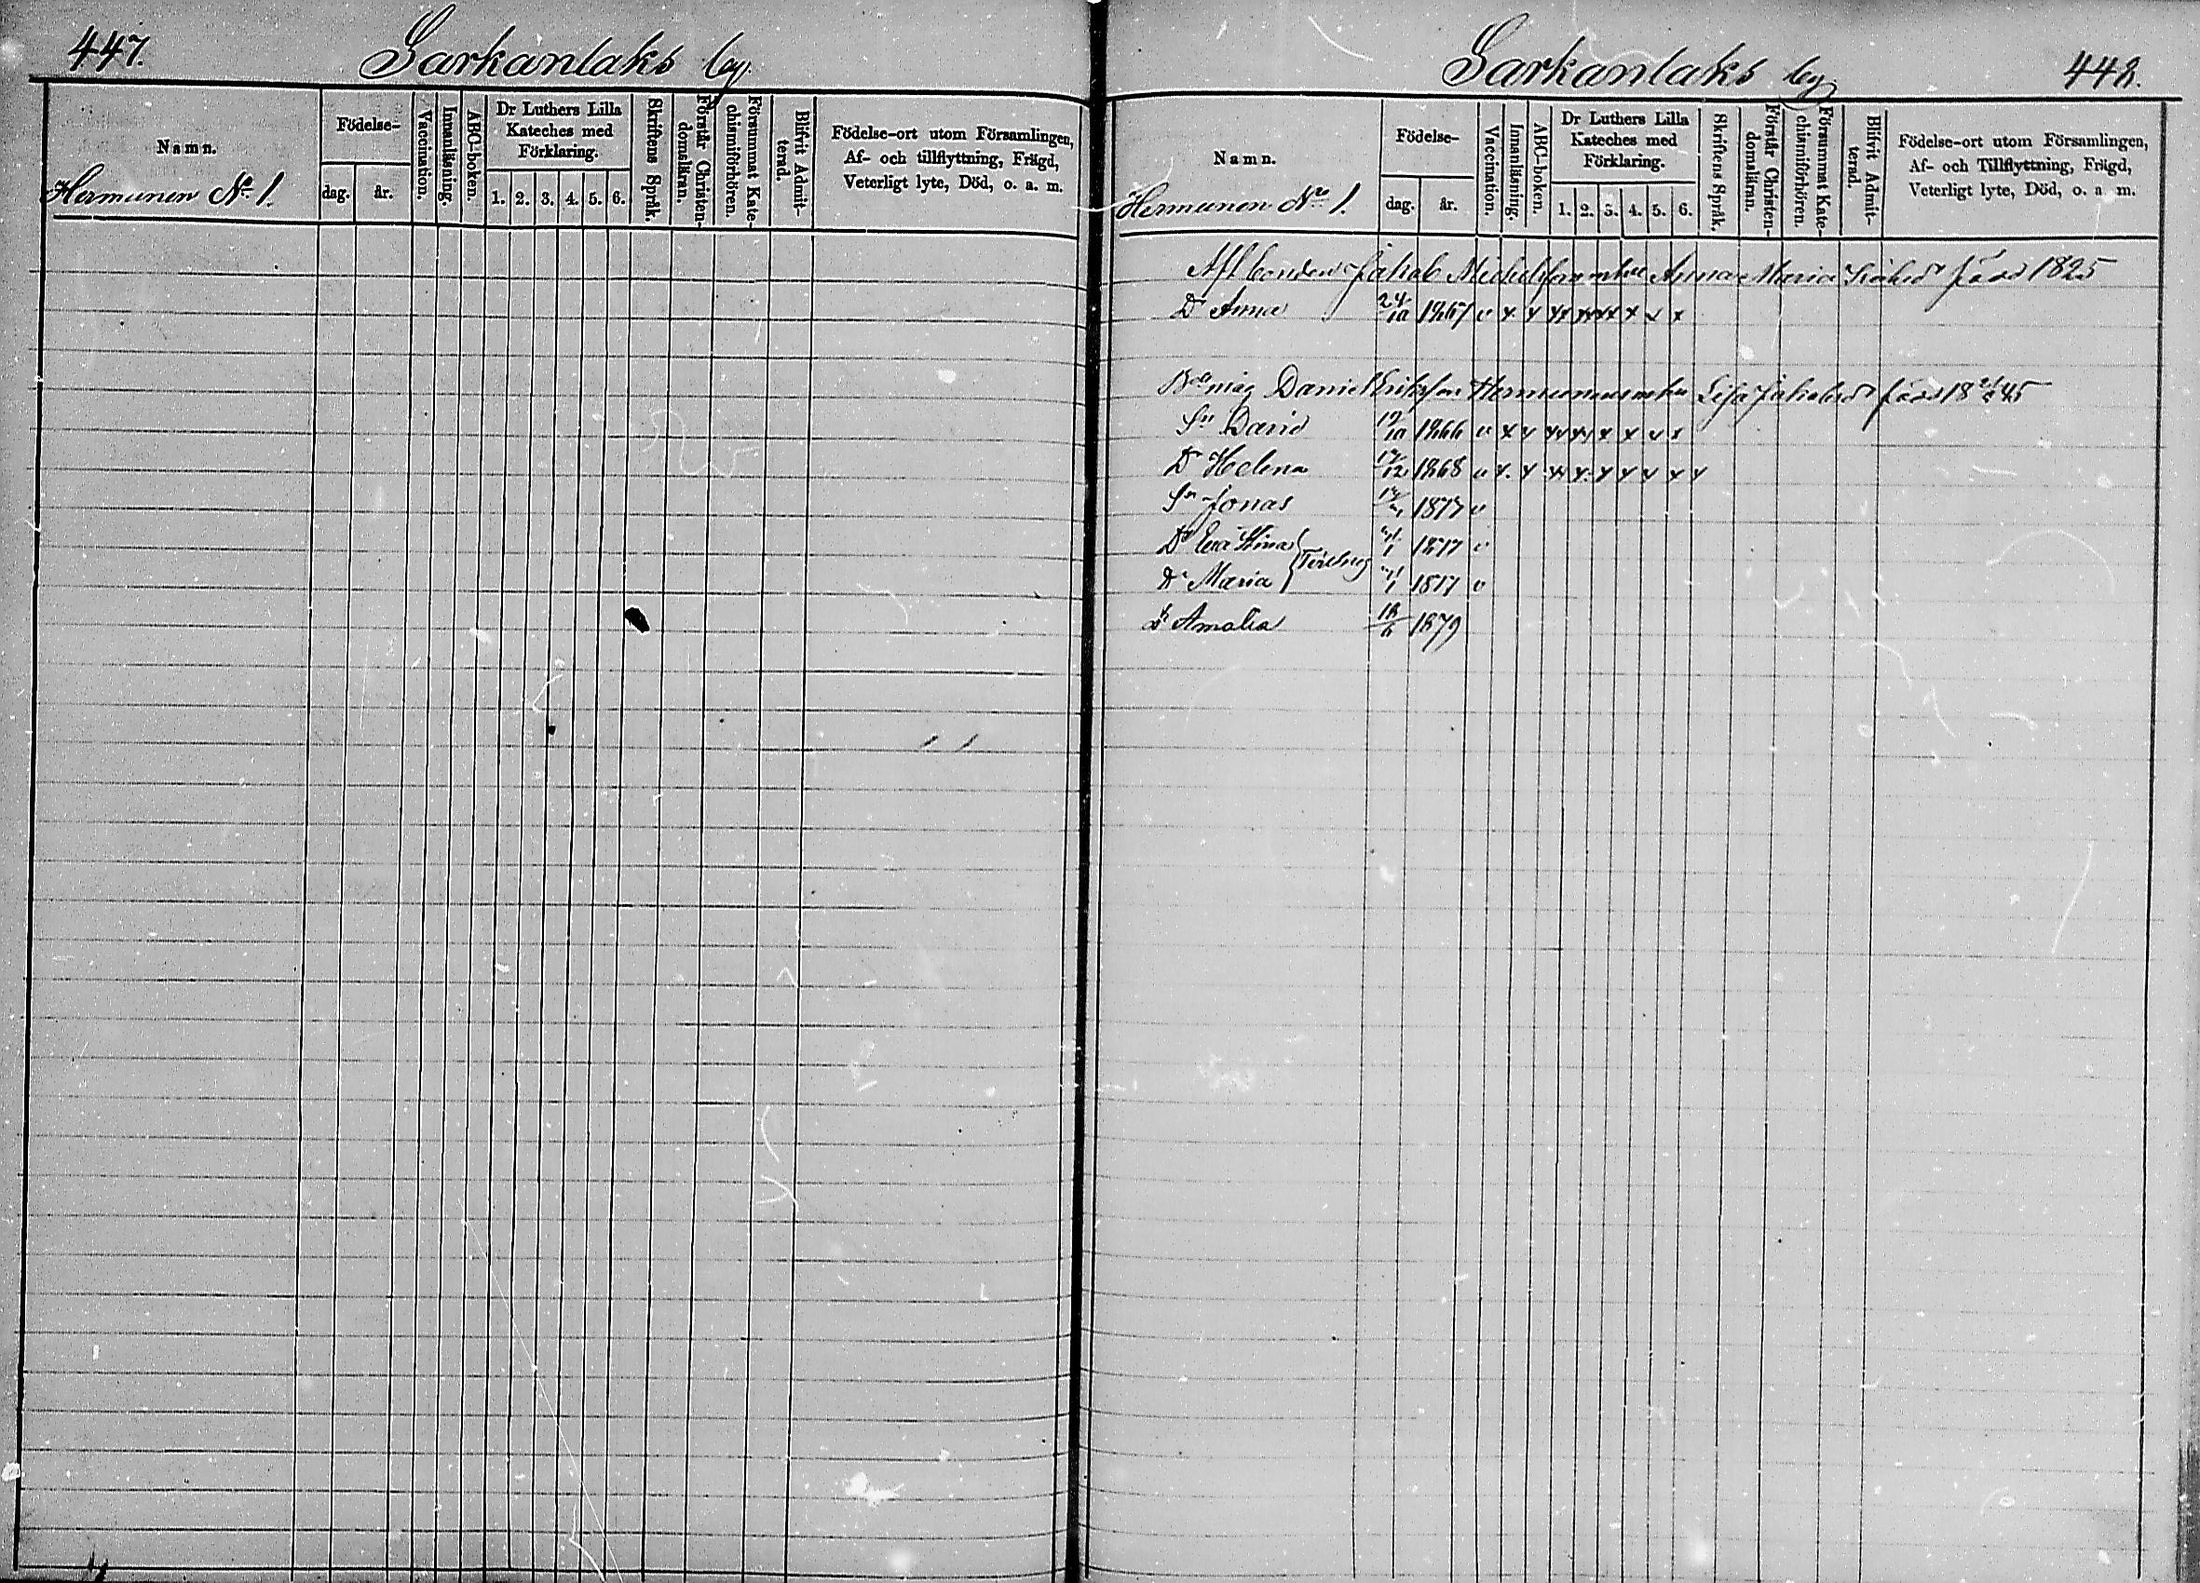 447.
Sarkanlaks by.
Namn.
Hermunen No 1.
Födelse-
dag.
år.
Vaccination.
Innanläsning.
ABC-boken.
Dr Luthers Lilla Kateches med Förklaring.
1. 2. 3. 4. 5. 6.
Skriftens Språk.
Förstår Christen-domsläran.
Försummat Kate-chismiförhören.
Blifvit Admit-terad.
Födelse-ort utom Församlingen,
Af- och tillflyttning, Frägd,
Veterligt lyte, Död, o. a. m.
Sarkanlaks by
448.
Namn.
Hermunen No 1.
Födelse-
dag.
år.
Vaccination.
Innanläsning.
ABC-boken.
Dr Luthers Lilla Kateches med Förklaring.
1. 2. 3. 4. 5. 6.
Skriftens Språk.
Förstår Christen-domsläran.
Försummat Kate-chismiförhören.
Blifvit Admit-terad.
Födelse-ort utom Församlingen,
Af- och Tillflyttning, Frägd,
Veterligt lyte, Död, o. a. m.
Afl bonden Jakob Anna Maria född 1825
Dr Anna 24/10 1867 v x x xx xx xx x x x
Daniel Eriksson Hermunens Lisa Jakobsdr född
Sn David 19/10 1866 v x x x x x x x x
Dr Helena 1868 v x x x x x x x x x
Sn Jonas 1877 v
Dr Eva Stina Tvilling 1877 v
Dr Maria 1877 v
Dr Amalia 18/6 1879